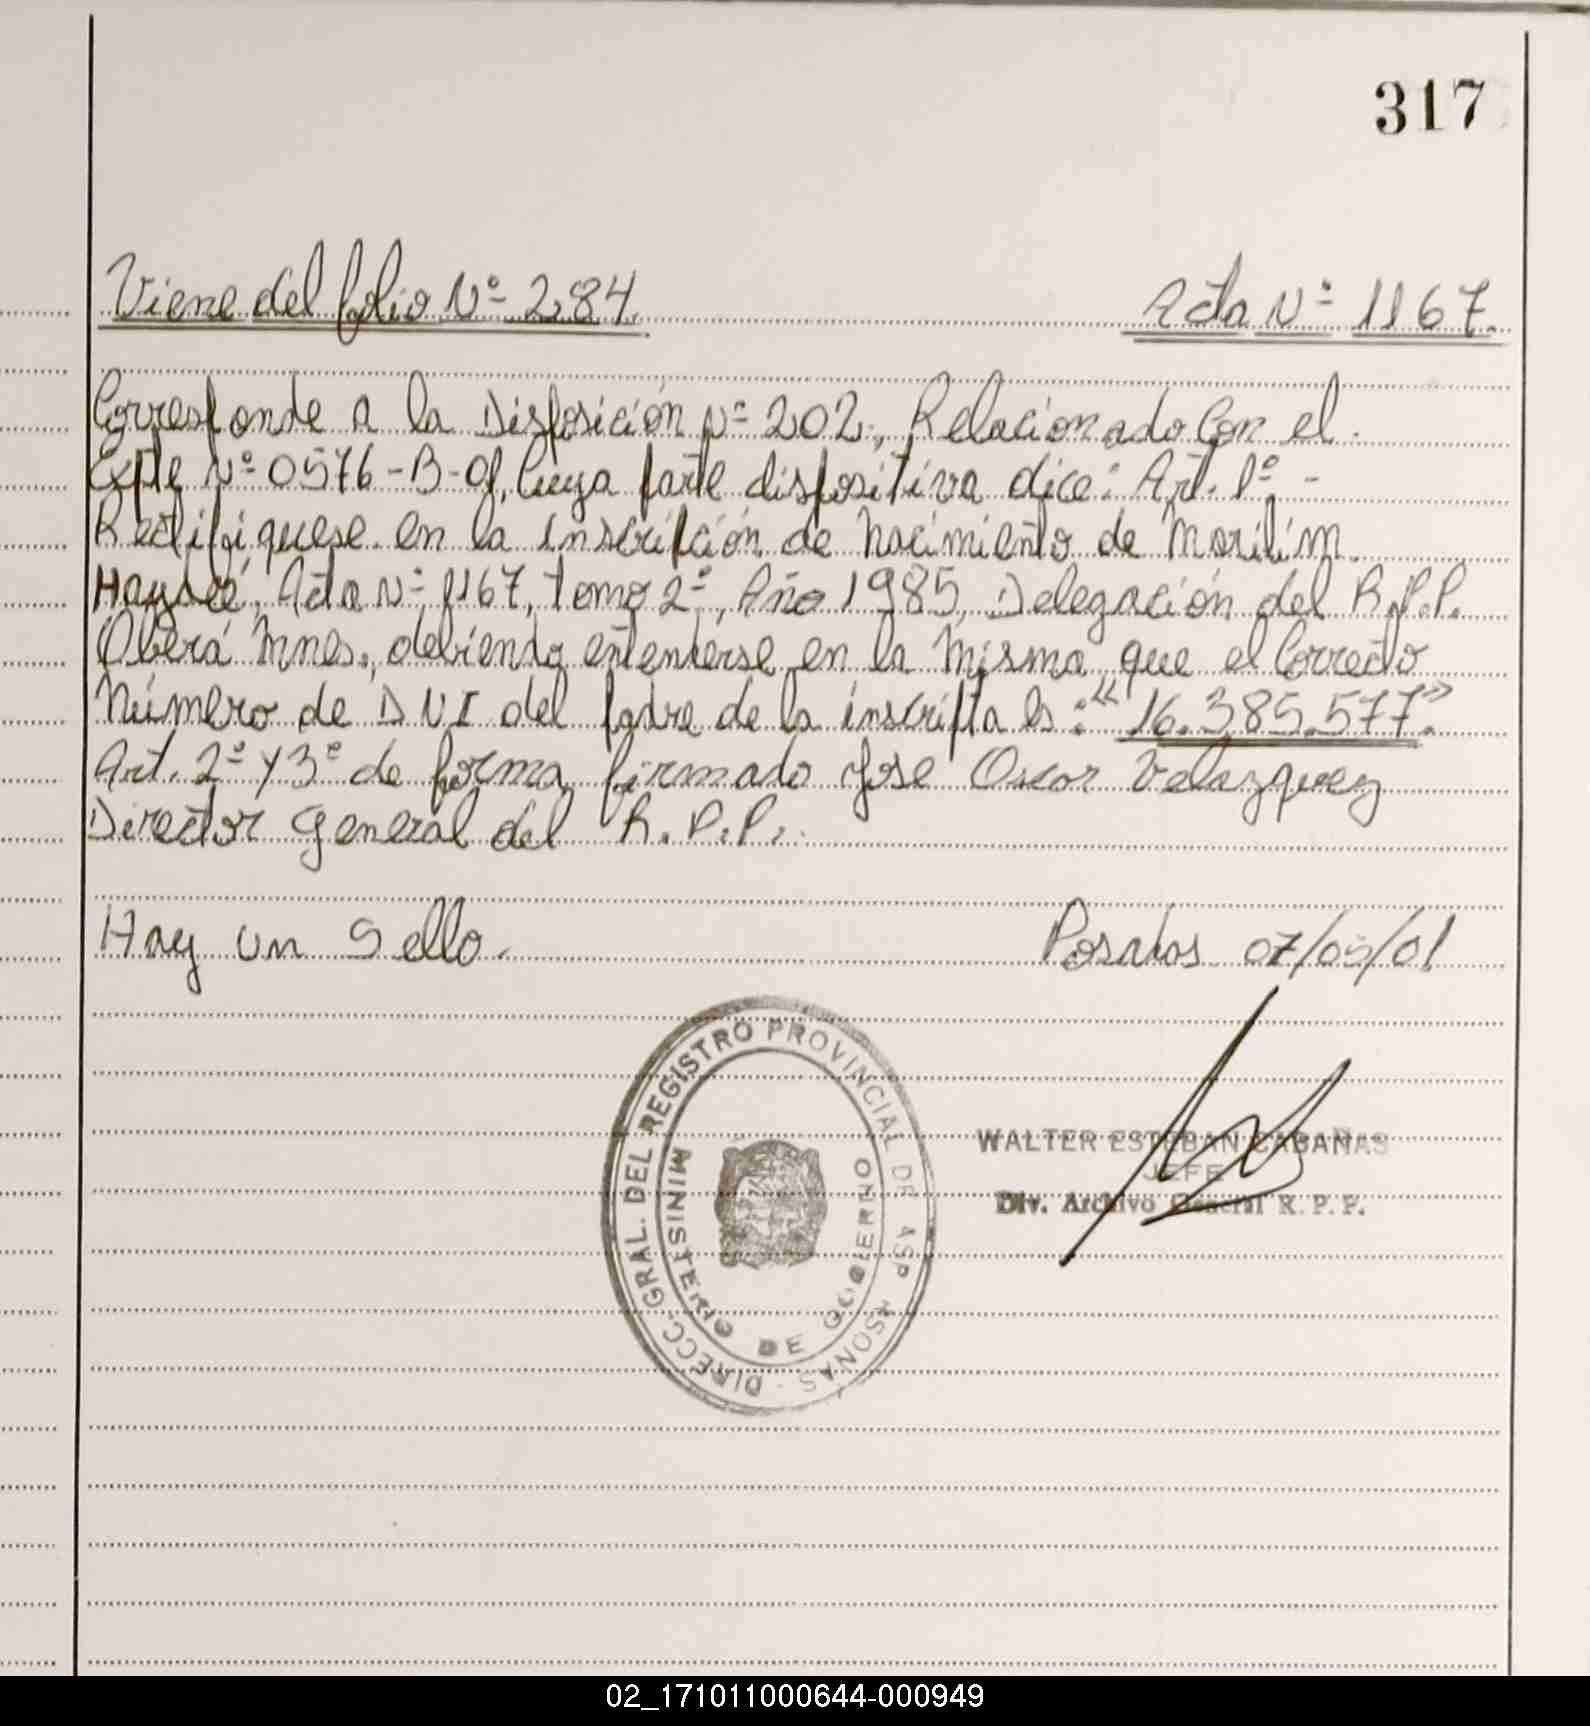 317
Viene del folio Nº 284.
Acta Nº 1167.
Corresponde a la Disposición Nº 202, Relacionado Con el
Expte Nº 0576-B-01, Cuya parte dispositiva dice: Art. 1º -
Rectifiquese en la inscripción de Nacimiento de
Acta Nº 1167, tomo 2º, Año 1985, Delegación del R.P.P.
Oberá Mnes., debiendo entenderse en la Misma que el Correcto
Número de DNI del padre de la inscripta es: "16.385.577".
Art. 2º y 3º de forma firmado Jose Oscar Velazquez
Director General del R.P.P.
Hay un Sello.
Posadas 07/05/01
DIRECC. GRAL. DEL REGISTRO PROVINCIAL DE
MINISTERIO DE GOBIERNO
WALTER ESTEBAN CABAÑAS
JEFE
Div. Archivo General R. P. P.
02_171011000644-000949